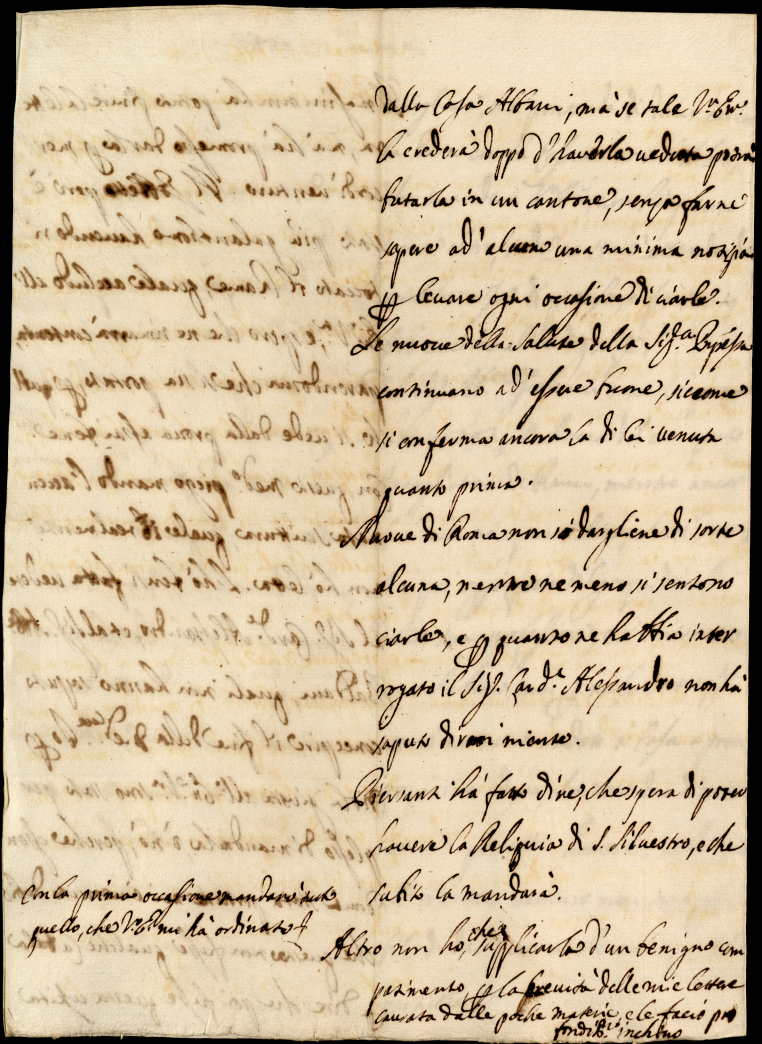 dalla Casa Albani, mà se tale V.ra Em.
la crederà doppo d'haverla veduta potrà
butarla in un cantone, senza farne
sapere ad' alcun una minima notizia
per levare ogni occasione di ciarle.
Le nuove della salute della Sig.ra
continuano ad' essere buone, siccome
si conferma ancora la di lei venuta
quanto prima.
Nuove di Roma non sò dargliene di sorte
alcuna, mentre ne meno si sentono
ciarle, e per quanto ne habbia inter
rogato il Sig. Card.e Alessandro non hà
saputo dirmi niente.
Piersanti hà fatto dire, che spera di poter
havere la Reliquia di S. Silvestro, e che
subito la mandarà.
Con la prima occasione mandarò
quello, che V. Em. mi hà ordinato
Altro non ho, che supplicarla d'un benigno com
patimento per la brevità delle mie lettere
causata dalle poche materie, e le facio pro
fondiss.o inchino